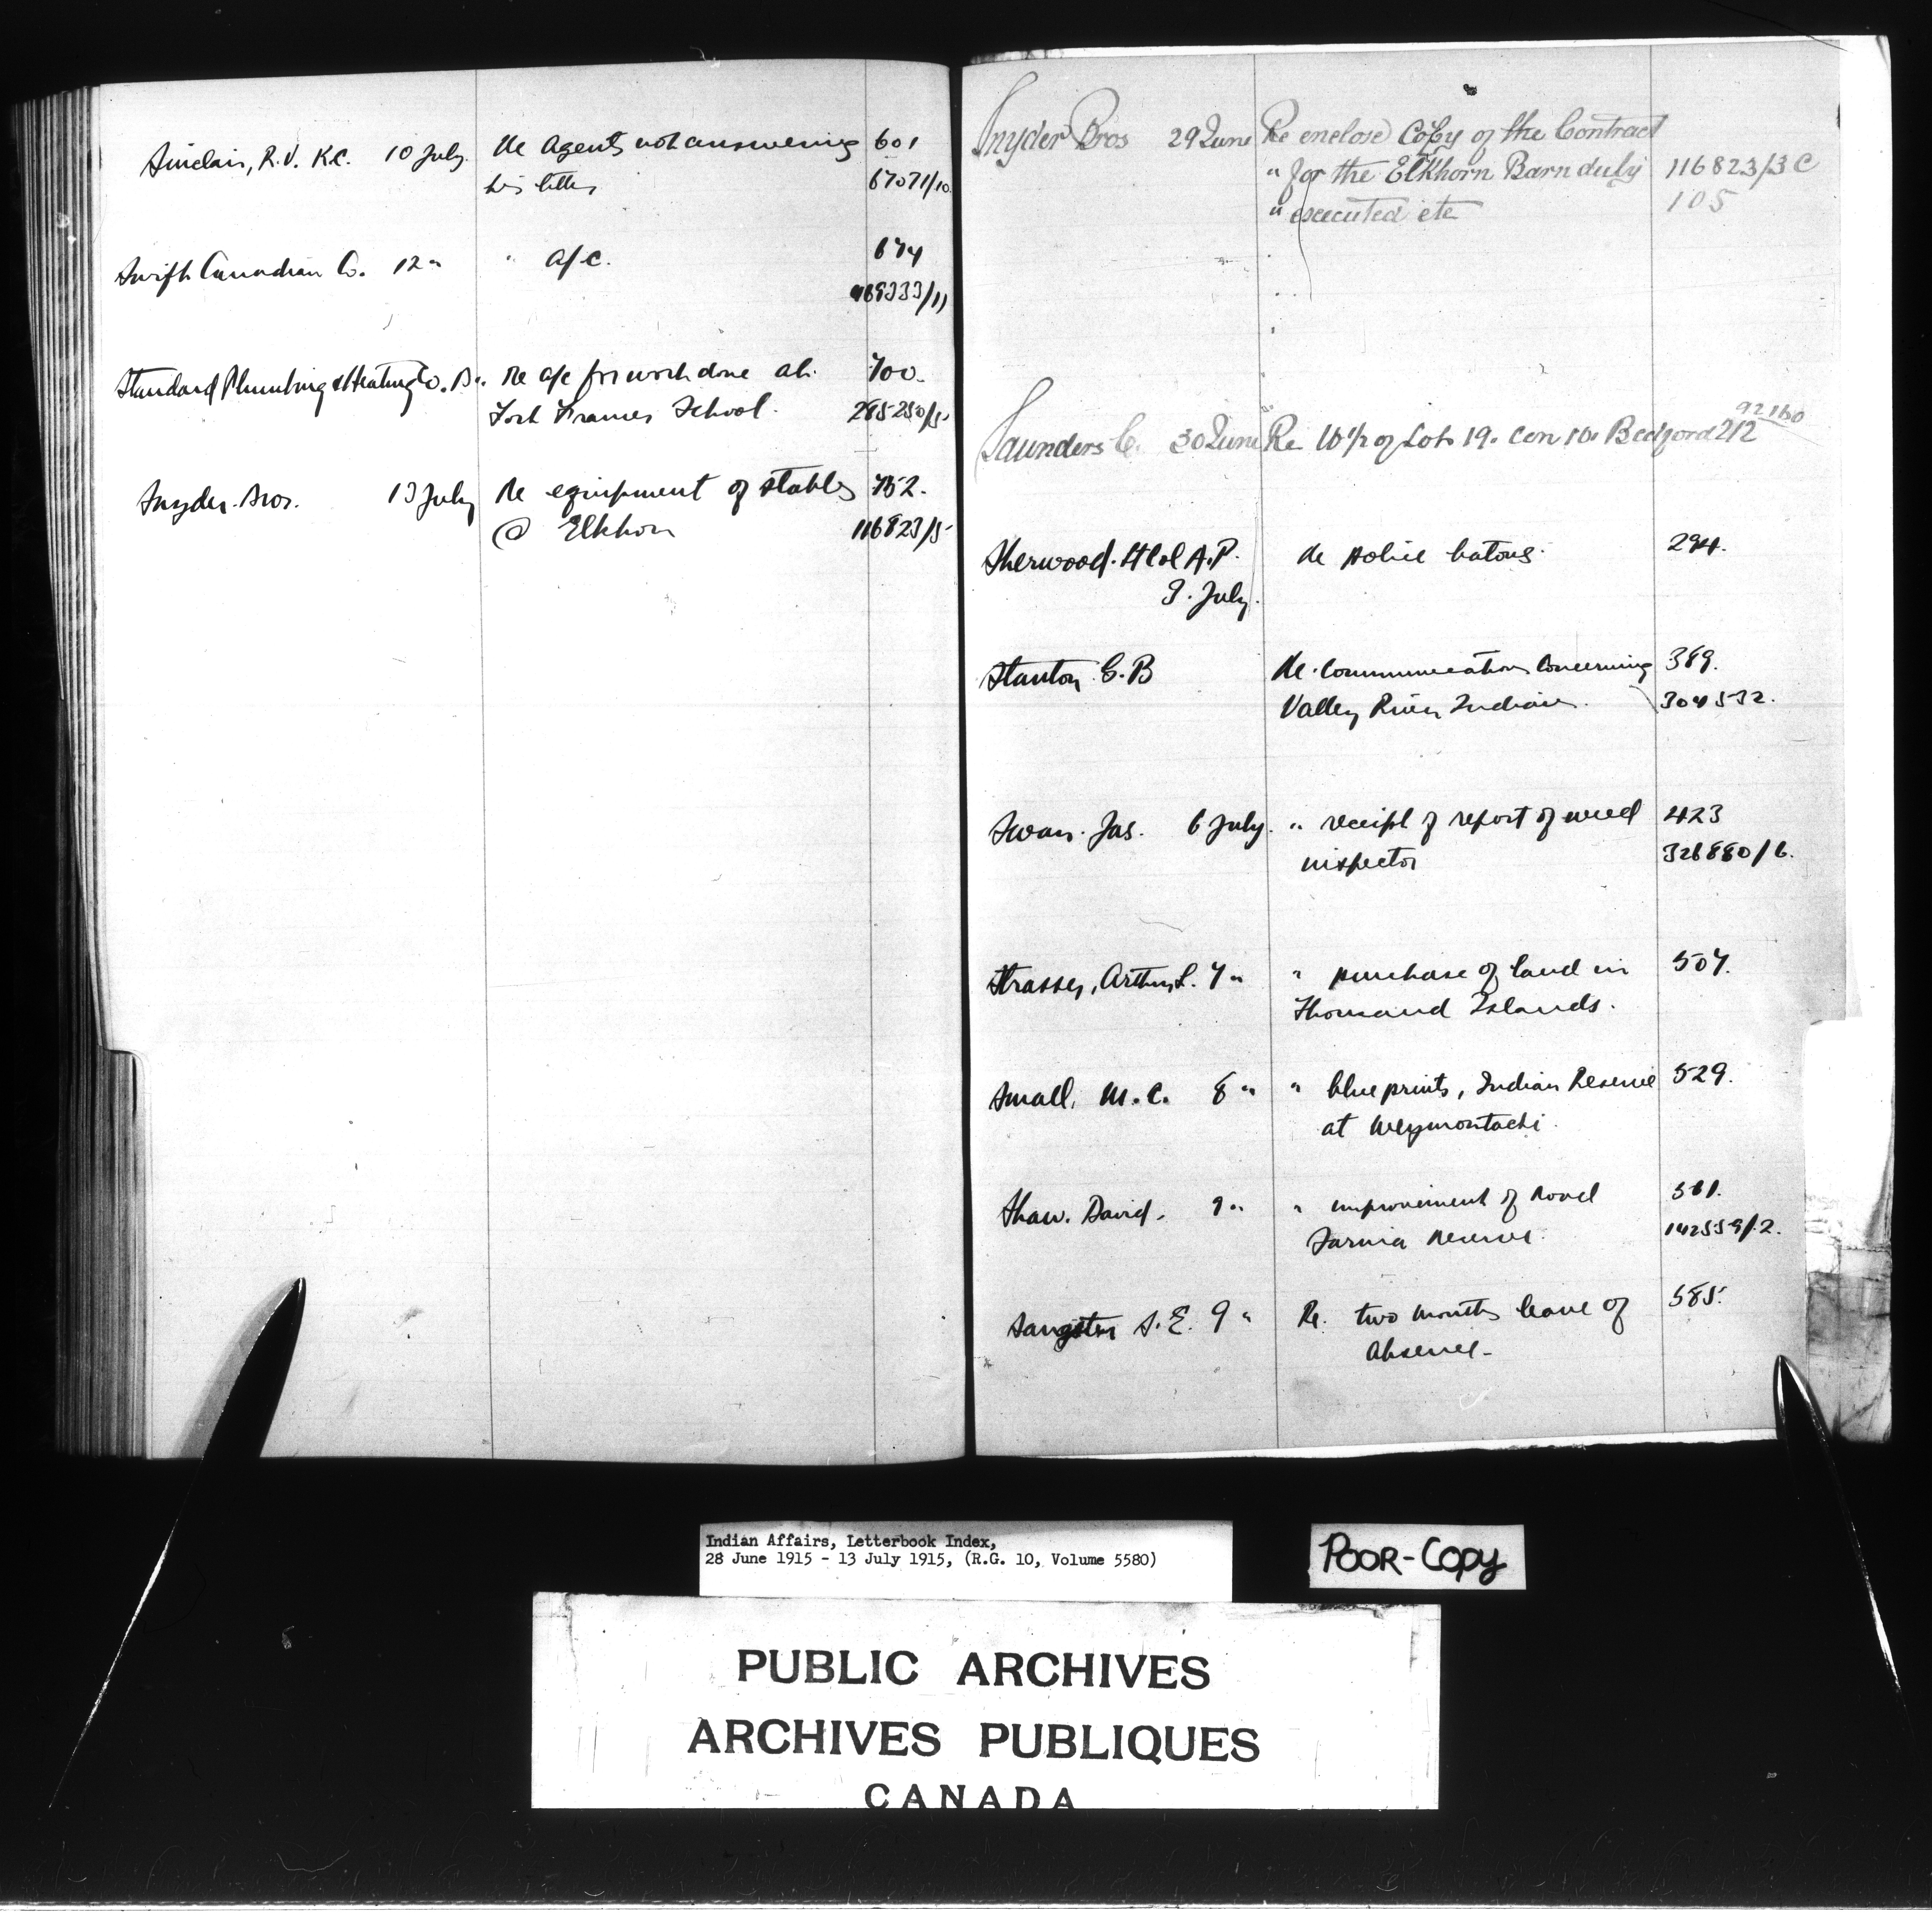 Sinclair, R.V. K.C. 10 July. Re Agents not answering 601
his letters 67071/10
Swift Canadian Co. 12 " " a/c. 674
469333/11
Standard Plumbing & Heating Co. 13 ". Re a/c for work done at 700.
Fort Frances School. 285250/5
Snyder Bros. 13 July Re equipment of stables 752.
@ Elkhorn 116823/5
Snyder Bros 29 June Re enclose Copy of the Contract
" for the Elkhorn Barn duly 116823/3C
" executed etc 105
92160
Saunders C. 30 June Re W 1/2 of Lot 19. Con 10. Bedford 212
Sherwood. Lt Col A.P. re police batons. 294.
3. July.
Stanton G. B Re. Communication Concerning 389.
Valley River Indians. 304532.
Swan. Jas. 6 July. " receipt of report of weed 423
inspector 326880/6.
Strasser, Arthur L. 7 " " purchase of land in 507.
Thousand Islands.
Small, M. C. 8 " " blue prints, Indian Reserve 529.
at Weymontachi.
Shaw. David. 9 " " improvement of road 561.
Sarnia Reserve. 142559/2.
Sangster S. E. 9 " Re. two months leave of 585.
Absence.
Indian Affairs, Letterbook Index,
28 June 1915 - 13 July 1915, (R.G. 10, Volume 5580)
POOR-COPY
PUBLIC ARCHIVES
ARCHIVES PUBLIQUES
CANADA